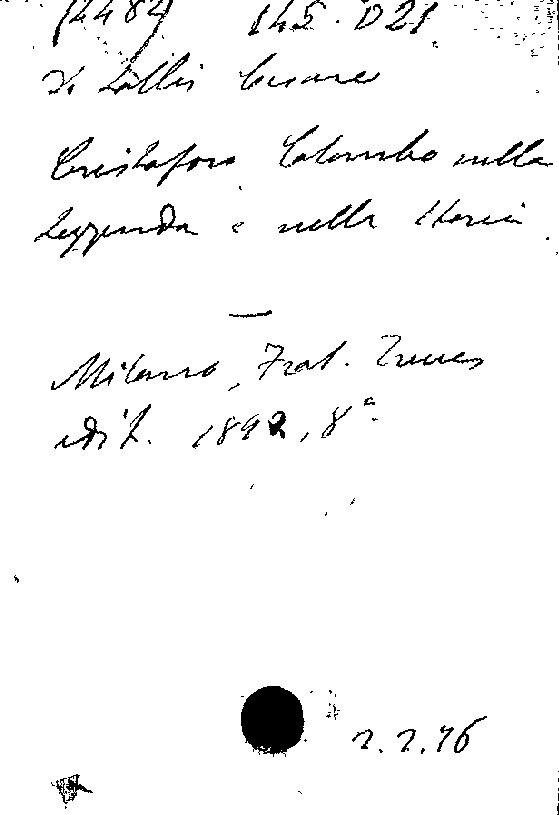 (4484) 145. D21
De Lollis Cesare
Cristoforo Colombo nella
leggenda e nella storia.
—
Milano, Frat. Treves
edit. 1892, 8°.
2.2.76